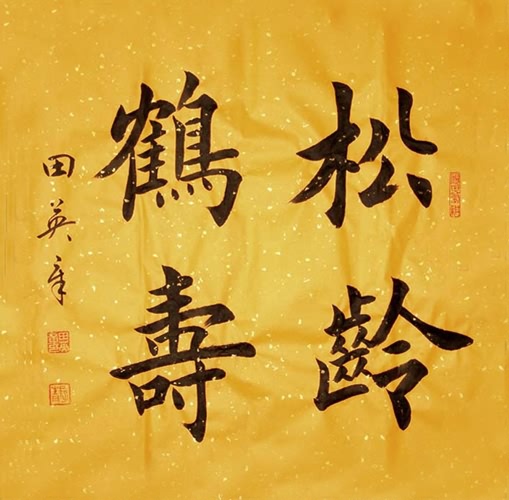 松齡
鶴壽
田英章